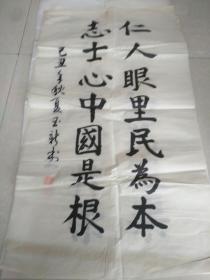 仁人眼里民為本
志士心中國是根
己丑年秋夏玉新書